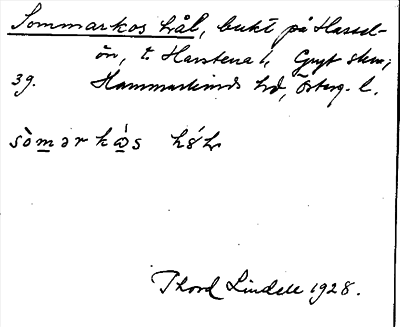 Sommarkos hål, bukt på Hassel-
ön, t. Harstena 1, Gryt skn,
39. Hammarkinds hd, Österg. l.
sòmər kás hól
Thord Lindell 1928.